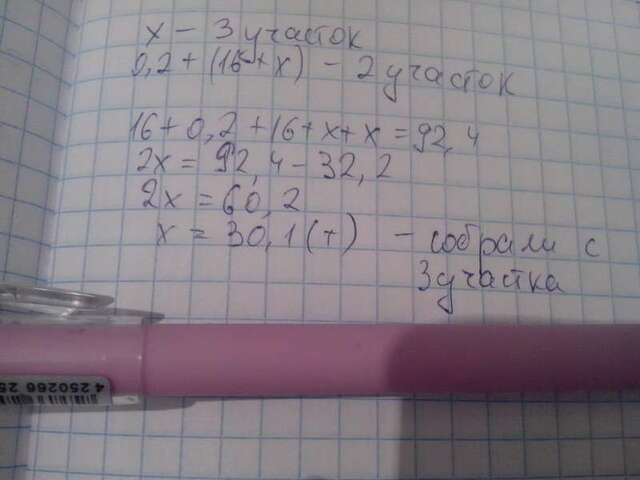 x – 3 участок
0,2 + (16 + x) – 2 участок
16 + 0,2 + 16 + x + x = 92,4
2x = 92,4 – 32,2
2x = 60,2
x = 30,1 (т) – собрали с
3 участка
4 250266 25